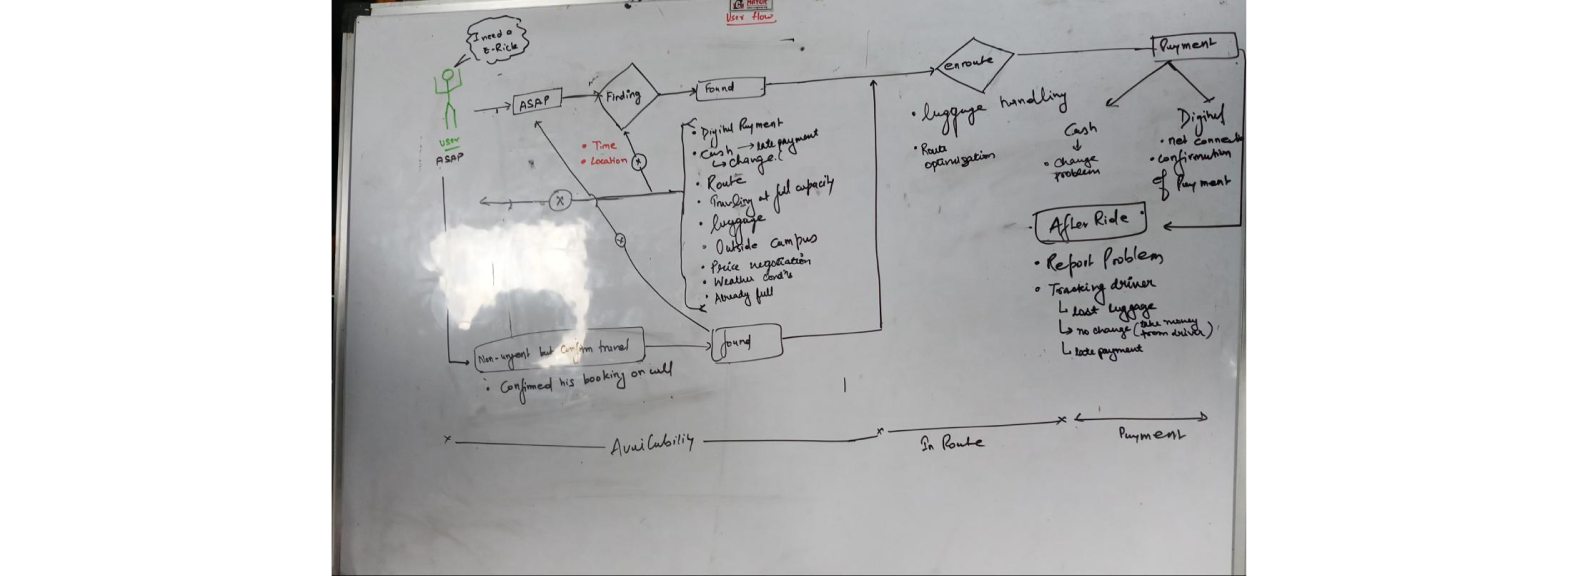 User flow
I need a
E-Rick
User
ASAP
ASAP
Finding
Found
• Time
• Location
x
x
x
• Digital Payment
• Cash → late payment
↳ change.
• Route
• Travelling at full capacity
• luggage
• Outside campus
• Price negotiation
• Weather
• Already full
Non-urgent but Confirm travel
• Confirmed his booking on call
found
enroute
• luggage handling
• Route
optimization
Payment
Cash
↓
• Change
problem
Digital
• net
• confirmation
of Payment
After Ride
• Report Problem
• Tracking driver
↳ Lost luggage
↳ no change (take money
from driver)
↳ late payment
Availability
In Route
Payment